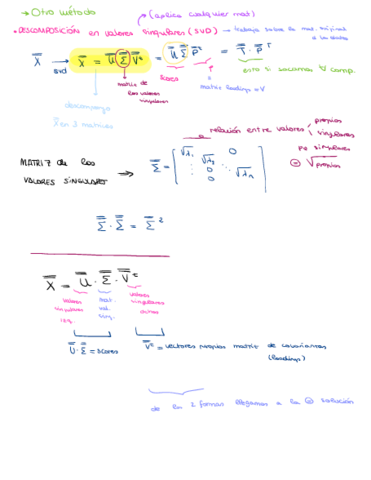 → Otro método
(aplica cualquier mat)
* DESCOMPOSICIÓN en valores singulares (SVD) → trabaja sobre la mat. original
X → svd X = U Σ Vᵗ = U Σ Pᵀ = T · Pᵀ
matriz de los valores singulares
scores
matriz loadings = V
esto si sacamos
descompongo
X en 3 matrices
relación entre valores propios / singulares
MATRIZ de los VALORES SINGULARES → Σ = [√λ₁ 0 √λ₂ 0 0 √λₙ]
no singulares
= √propios
Σ · Σ = Σ²
X = U · Σ · Vᵗ
valores singulares izq.
mat. val. sing.
valores singulares dchos
U · Σ = scores
Vᵗ = vectores propios matriz de covarianzas
(loadings)
de las 2 formas llegamos a la = solución